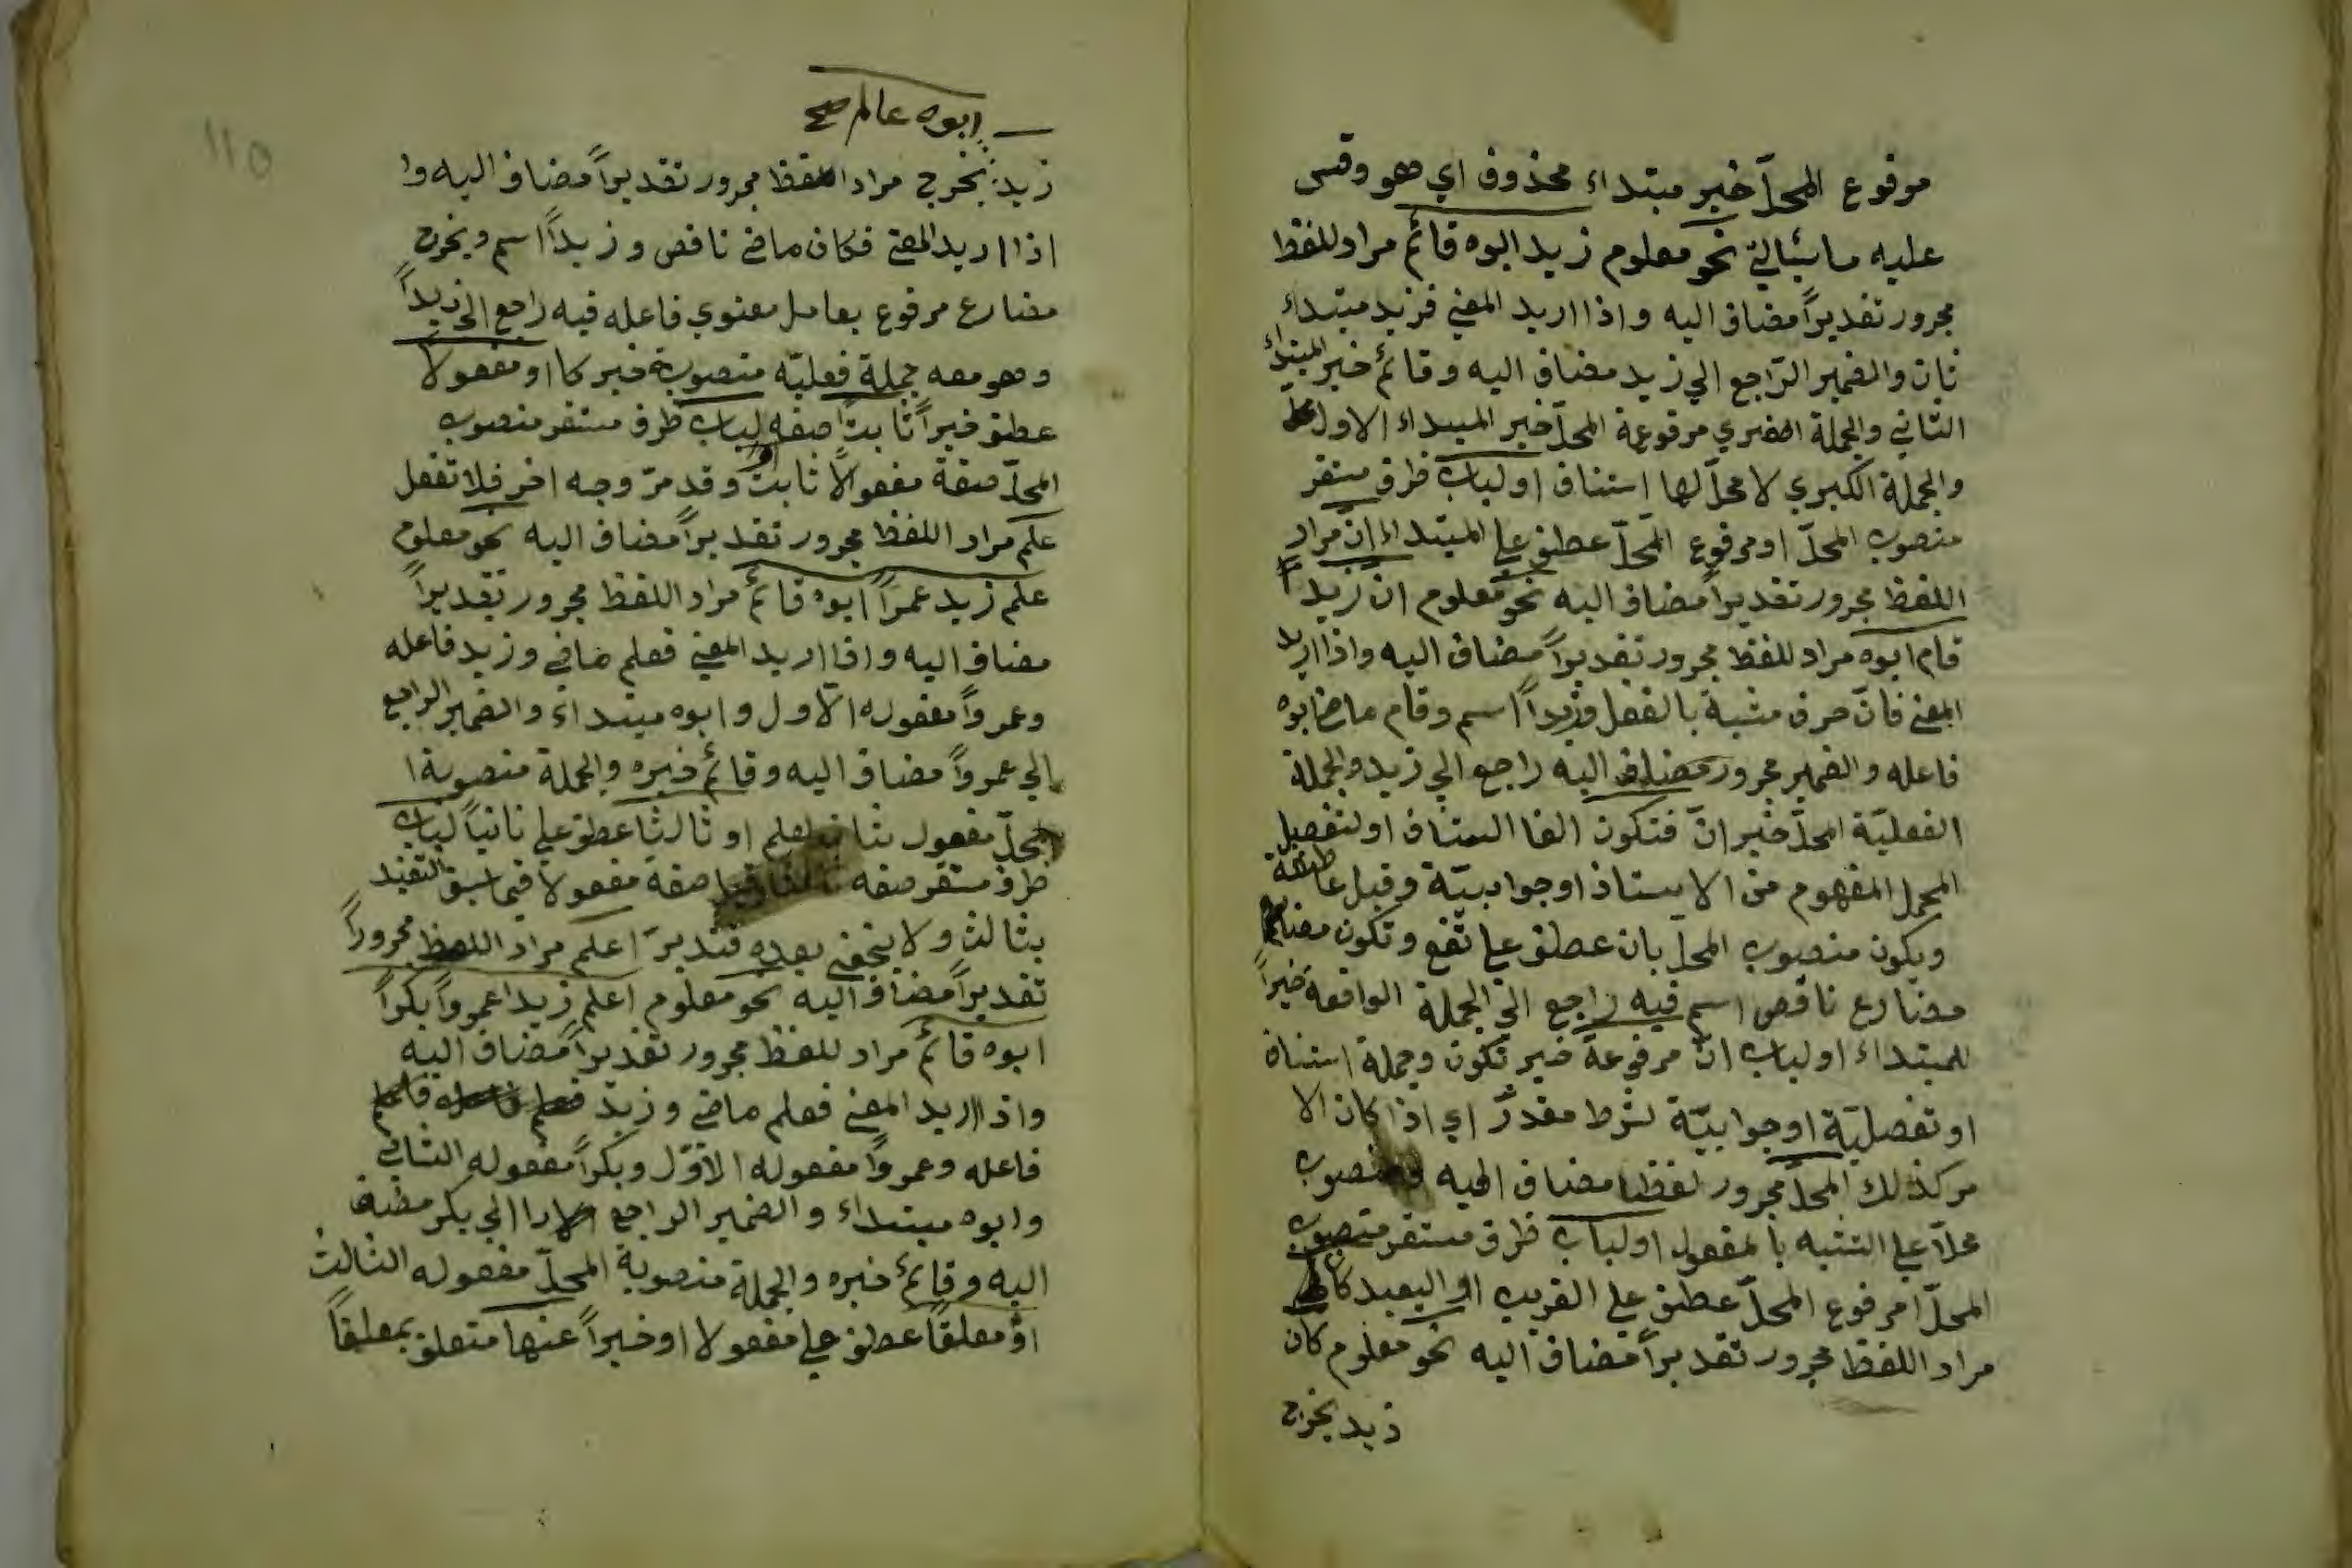 مرفوع المحلّ خبر مبتداء محذوف اي هو وقس
عليه ما سيأتي نحو معلوم زيد ابوه قائم مراد للفظ
مجرور تقديراً مضاف اليه واذا اريد المعني فزيد مبتداء
ثان والضمير الرّاجع الي زيد مضاف اليه وقائم خبر المبتداء
الثاني والجملة الصغري مرفوعة المحلّ خبر المبتداء الاول
والجملة الكبري لا محلّ لها استئناف او لباب ظرف مستقر
منصوب المحلّ او مرفوع المحلّ عطف علي المبتداء انّ مراد
اللفظ مجرور تقديراً مضاف اليه نحو معلوم ان زيداً
قام ابوه مراد للفظ مجرور تقديراً مضاف اليه واذا اريد
المعني فانّ حرف مشبة بالفعل وزيداً اسم وقام ماض ابوه
فاعله والضمير مجرور مضاف اليه راجع الي زيد والجملة
الفعليّة المحلّ خبر انّ فتكون الفا استئناف او لتفصيل
المجمل المفهوم من الا او جوابيّة وقيل عاطفة
ويكون منصوب المحلّ بان عطف علي تقع وتكون مضارع
مضارع ناقص اسم فيه راجع الي الجملة الواقعة خبراً
للمبتداء او لباب انّ مرفوعة خبر تكون وجملة استئناف
او تفصليّة او جوابيّة لشرط مقدّر اي اذا كان الا
مر كذلك المحلّ مجرور لفظا مضاف اليه ومنصوب
محلاّ علي التشبه بالمفعول او لباب ظرف مستقر منصوب
المحلّ امرفوع المحلّ عطف علي القريب او البعيد كان
مراد اللفظ مجرور تقديراً مضاف اليه نحو معلوم كان
زيد يخرج
ابوه عالم صح
زيد يخرج مراد اللفظ مجرور تقديراً مضاف اليه وا
اذا اريد المعني فكان ماضي ناقص وزيداً اسم ويخرج
مضارع مرفوع بعامل معنوي فاعله فيه راجع الي زيداً
وهو معه جملة فعليّة منصوبة خبر كا او مفعولا
عطف خبراً ثابتاً صفة لباب ظرف مستقر منصوب
المحلّ صفة مفعولاً ثابت وقد مرّ وجه اخر فلا تغفل
علم مراد اللفظ مجرور تقديراً مضاف اليه نحو معلوم
علم زيد عمراً ابوه قائم مراد اللفظ مجرور تقديراً
مضاف اليه واذا اريد المعني فعلم ماضي وزيد فاعله
وعمرواً مفعوله الاول وابوه مبتداء والضمير الراجع
الي عمرواً مضاف اليه وقائم خبره والجملة منصوبة ا
لمحلّ مفعول ثان لعلم او ثالثا عطف علي ثانياً لباب
ظرف مستقر صفة ثالثا وقيل صفة مفعولا فيما سبق التقيد
بثالث ولا يخفي بعده فتدبرّ اعلم مراد اللفظ مجروراً
تقديراً مضاف اليه نحو معلوم اعلم زيدا عمرواً بكراً
ابوه قائم مراد للفظ مجرور تقديراً مضاف اليه
واذا اريد المعني فعلم ماضي وزيد
فاعله وعمرواً مفعوله الاوّل وبكراً مفعوله الثاني
وابوه مبتداء والضمير الراجع الي بكر مضاف
اليه وقائم خبره والجملة منصوبة المحلّ مفعوله الثالث
او معلقاً عطف علي مفعولا او خبراً عنها متعلق بمعلقاً
١١٥